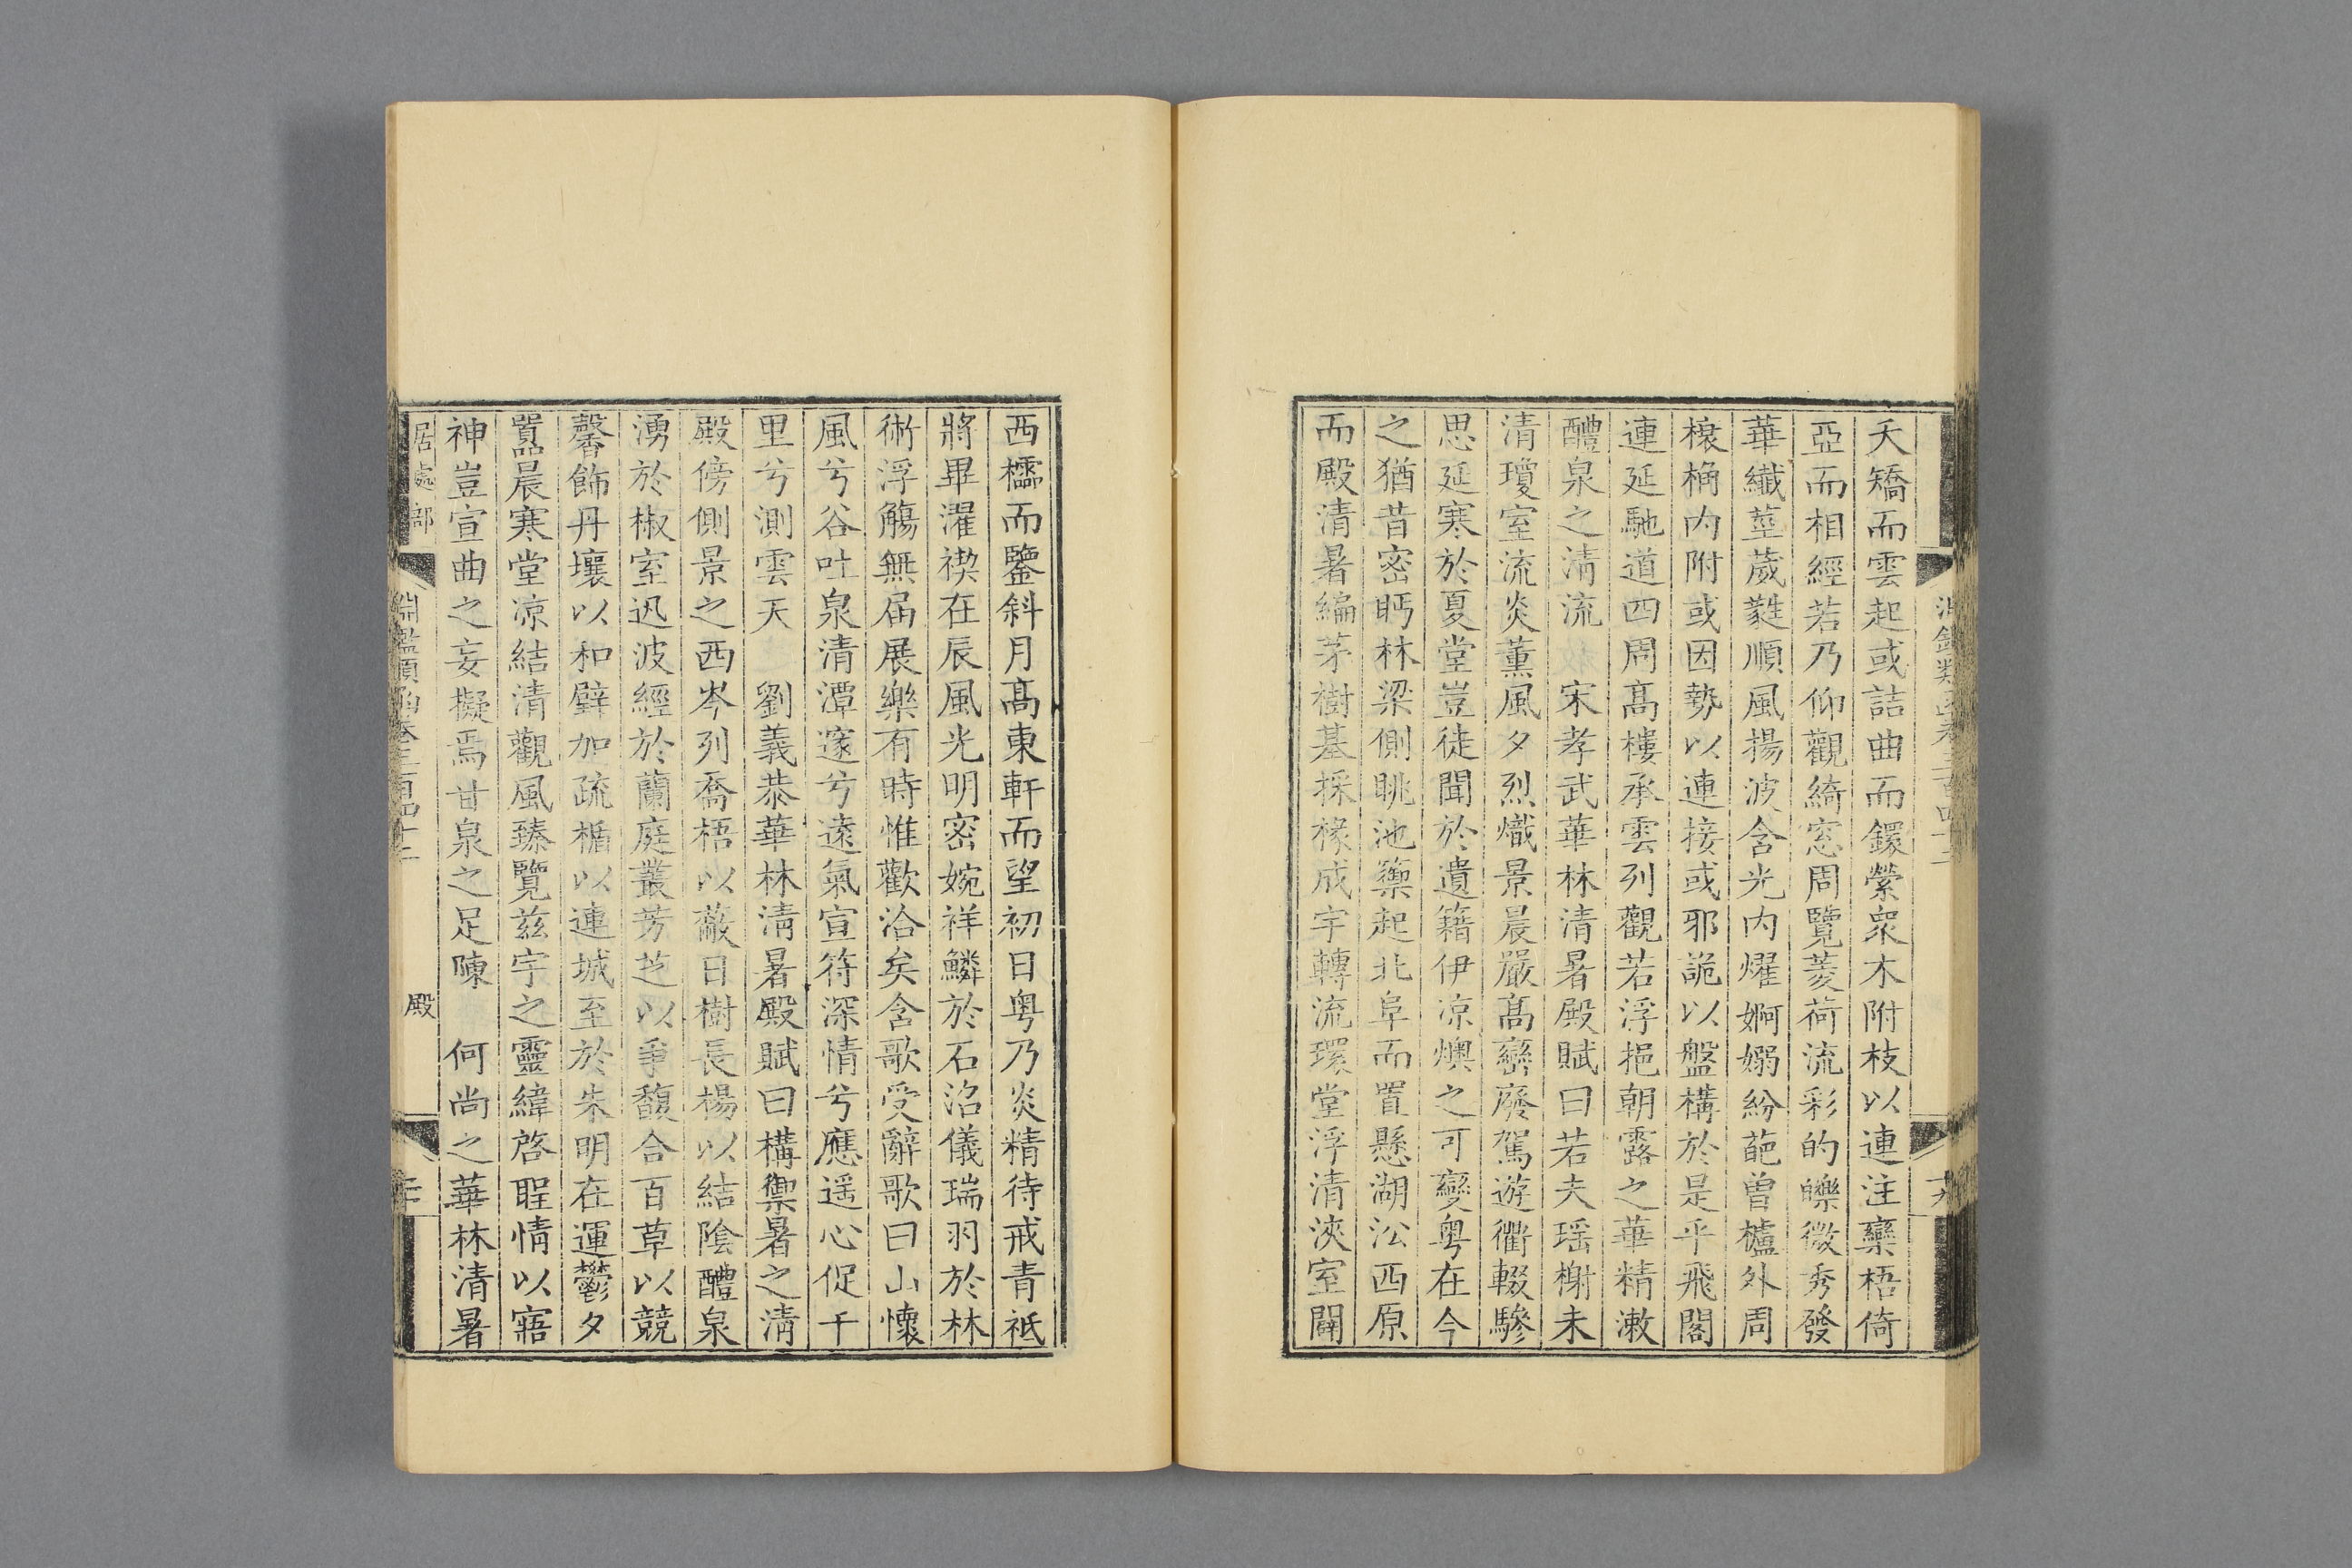 夭矯而雲起或詰曲而鐶縈衆木附枝以連注欒梧倚
亞而相經若乃仰觀綺窓周覽菱荷流彩的皪微秀發
華纎莖葳蕤順風揚波含光内燿婀嫋紛葩曾櫨外周
榱桷内附或因勢以連接或邪詭以盤構於是乎飛閣
連延馳道四周高樓承雲列觀若浮挹朝露之華精漱
醴泉之清流　宋孝武華林清暑殿賦曰若夫瑶榭未
清瓊室流炎薫風夕烈熾景晨嚴髙巒廢駕遊衢輟驂
思延寒於夏堂豈徒聞於遺籍伊凉燠之可變粤在今
之猶昔密眄林梁側眺池籞起北阜而置懸湖沿西原
而殿清暑編茅樹基採椽成宇轉流環堂浮清浹室闢
西櫺而鑒斜月髙東軒而望初日粤乃炎精待戒青祇
將畢濯禊在辰風光明密婉祥鱗於石沼儀瑞羽於林
術浮觴無届展樂有時惟歡洽矣含歌受辭歌曰山懷
風兮谷吐泉清潭邃兮遠氣宣符深情兮應遥心促千
里兮測雲天　劉義恭華林清暑殿賦曰構禦暑之清
殿傍側景之西岑列喬梧以蔽日樹長楊以結陰醴泉
湧於椒室迅波經於蘭庭叢芳芝以爭馥合百草以競
馨飾丹壤以和璧加疏楯以連城至於朱明在運鬱夕
嚚晨寒堂凉結清觀風臻覽兹宇之靈緯啓聖情以寤
神豈宣曲之妄擬焉甘泉之足陳　何尚之華林清暑
居處部
淵鑑類函卷三百四十二
殿